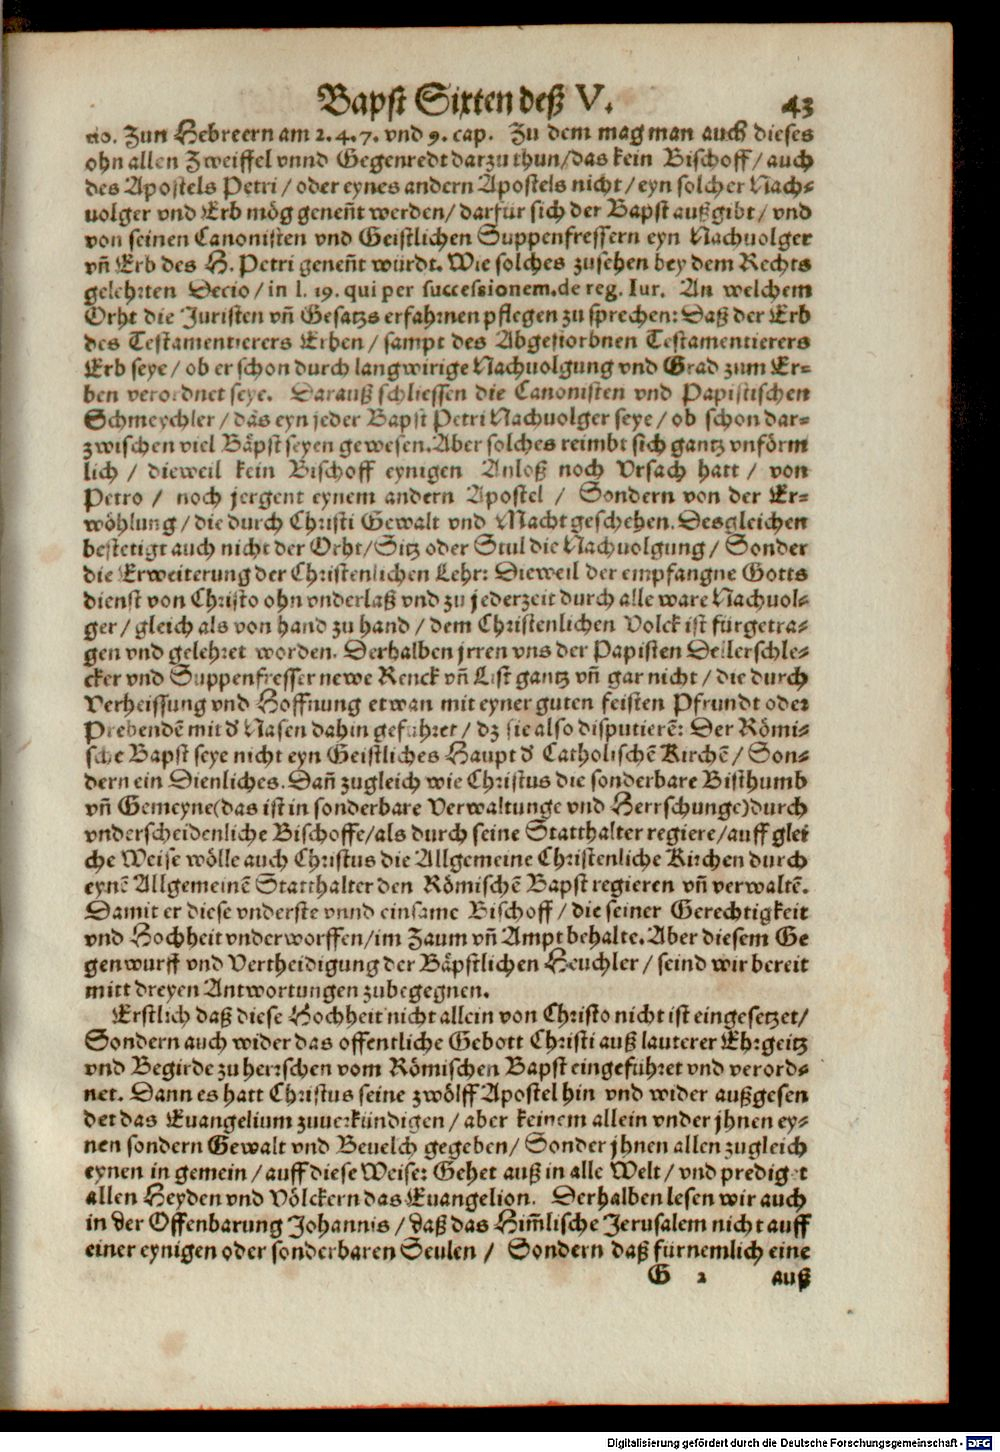 Bapst Sixten deß V. 43
no. Zun Hebreern am 2. 4. 7. vnd 9. cap. Zu dem mag man auch dieses
ohn allen Zweiffel vnnd Gegenredt darzu thun/das kein Bischoff/auch
des Apostels Petri/oder eynes andern Apostels nicht/eyn solcher Nach-
uolger vnd Erb mög geneñt werden/darfür sich der Bapst außgibt/vnd
von seinen Canonisten vnd Geistlichen Suppenfressern eyn Nachuolger
vñ Erb des H. Petri geneñt würdt. Wie solches zusehen bey dem Rechts
gelehrten Decio/in l. 19. qui per successionem. de reg. Iur. An welchem
Orht die Juristen vñ Gesatzs erfahrnen pflegen zu sprechen: Daß der Erb
des Testamentierers Erben/sampt des Abgestorbnen Testamentierers
Erb seye/ob er schon durch langwirige Nachuolgung vnd Grad zum Er-
ben verordnet seye. Darauß schliessen die Canonisten vnd Papistischen
Schmeychler/das eyn jeder Bapst Petri Nachuolger seye/ob schon dar-
zwischen viel Bäpst seyen gewesen. Aber solches reimbt sich gantz vnförm
lich/dieweil kein Bischoff eynigen Anloß noch Vrsach hatt/von
Petro/noch jergent eynem andern Apostel/Sondern von der Er-
wöhlung/die durch Christi Gewalt vnd Macht geschehen. Desgleichen
bestetigt auch nicht der Orht/Sitz oder Stul die Nachuolgung/Sonder
die Erweiterung der Christenlichen Lehr: Dieweil der empfangne Gotts
dienst von Christo ohn vnderlaß vnd zu jederzeit durch alle ware Nachuol-
ger/gleich als von hand zu hand/dem Christenlichen Volck ist fürgetra-
gen vnd gelehret worden. Derhalben jrren vns der Papisten Dellerschle-
cker vnd Suppenfresser newe Renck vñ List gantz vñ gar nicht/die durch
Verheissung vnd Hoffnung etwan mit eyner guten feisten Pfrundt oder
Prebendẽ mit d' Nasen dahin geführet/dz sie also disputierẽ: Der Römi-
sche Bapst seye nicht eyn Geistliches Haupt d' Catholischẽ Kirchẽ/Son-
dern ein Dienliches. Dañ zugleich wie Christus die sonderbare Bisthumb
vñ Gemeyne(das ist in sonderbare Verwaltunge vnd Herrschunge)durch
vnderscheidenliche Bischoffe/als durch seine Statthalter regiere/auff glei
che Weise wölle auch Christus die Allgemeine Christenliche Kirchen durch
eynẽ Allgemeinẽ Statthalter den Römischẽ Bapst regieren vñ verwaltẽ.
Damit er diese vnderste vnnd einsame Bischoff/die seiner Gerechtigkeit
vnd Hochheit vnderworffen/im Zaum vñ Ampt behalte. Aber diesem Ge
genwurff vnd Vertheidigung der Bäpstlichen Heuchler/seind wir bereit
mitt dreyen Antwortungen zubegegnen.
Erstlich daß diese Hochheit nicht allein von Christo nicht ist eingesetzet/
Sondern auch wider das offentliche Gebott Christi auß lauterer Ehrgeitz
vnd Begirde zu herrschen vom Römischen Bapst eingeführet vnd verord-
net. Dann es hatt Christus seine zwölff Apostel hin vnd wider außgesen
det das Euangelium zuuerkündigen/aber keinem allein vnder jhnen ey-
nen sondern Gewalt vnd Beuelch gegeben/Sonder jhnen allen zugleich
eynen in gemein/auff diese Weise: Gehet auß in alle Welt/vnd prediget
allen Heyden vnd Völckern das Euangelion. Derhalben lesen wir auch
in der Offenbarung Johannis/daß das Him̃lische Jerusalem nicht auff
einer eynigen oder sonderbaren Seulen/Sondern daß fürnemlich eine
G 2 auß
Digitalisierung gefördert durch die Deutsche Forschungsgemeinschaft - DFG